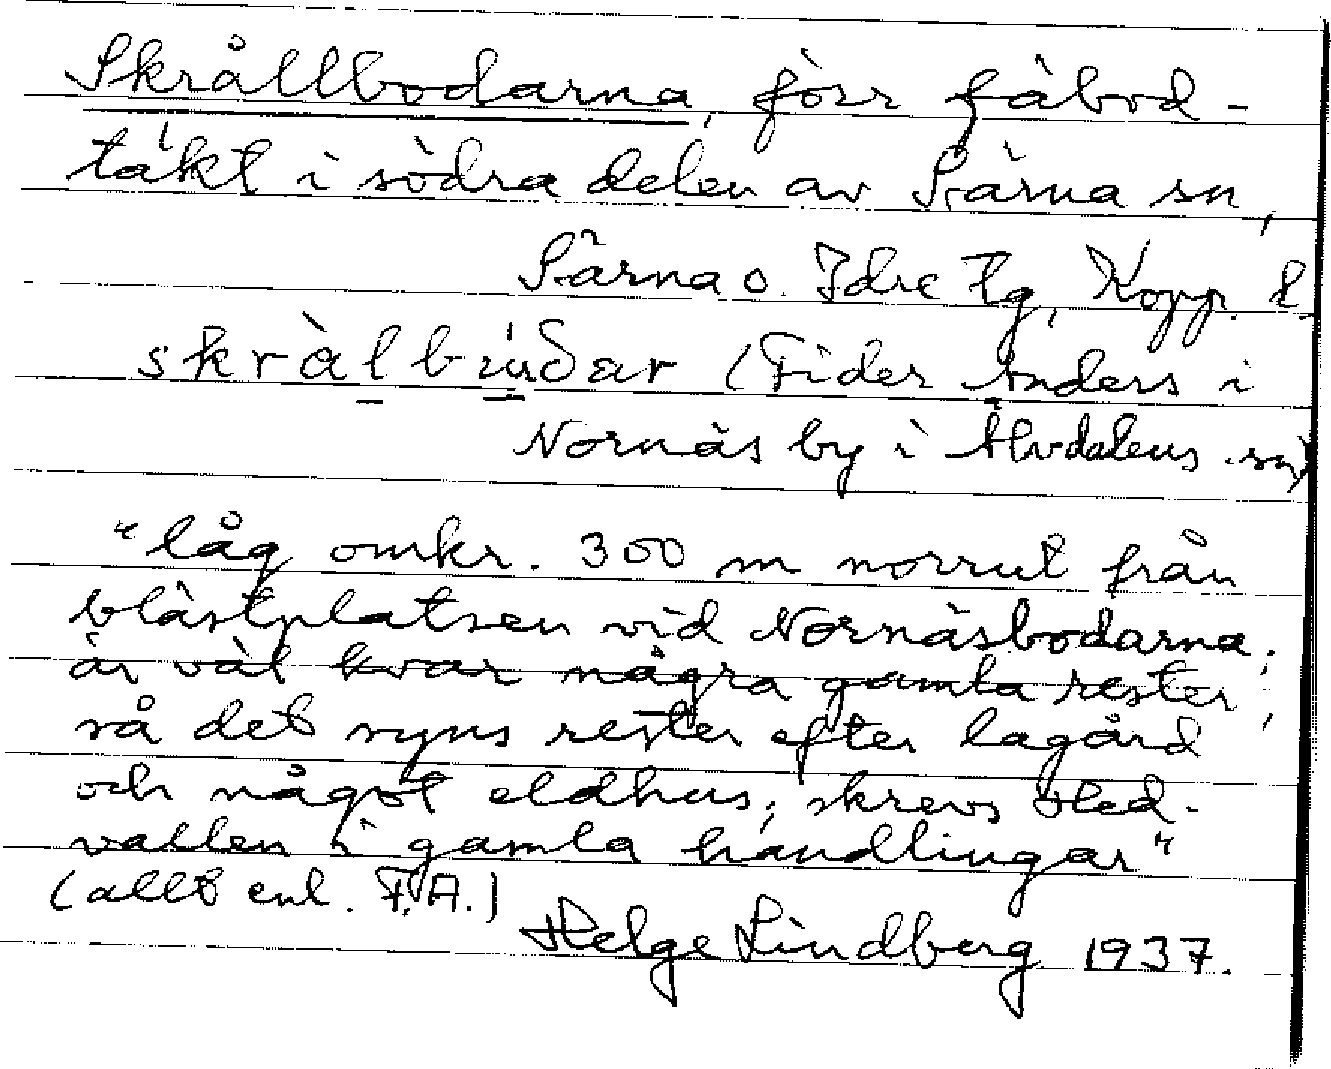 Skrållbodarna, förr fäbod-
täkt i södra delen av Särna sn,
Särna o. Idre tg, Kopp. l.
skràlbùðar (Fider Anders i
Nornäs by i Älvdalens sn)
"låg omkr. 300 m norrut från
blästplatsen vid Nornäsbodarna;
är väl kvar några gamla rester,
så det syns rester efter lagård
och något eldhus; skrevs Sled-
vallen i gamla handlingar"
(allt enl. F.A.)
Helge Lindberg 1937.